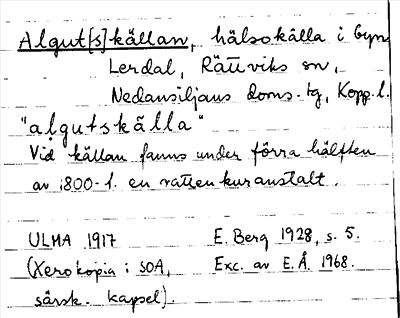 Algut[s]källan, hälsokälla i byn
Lerdal, Rättviks sn,
Nedansiljans doms. tg, Kopp. l.
"algutskälla"
Vid källan fanns under förra hälften
av 1800-t. en vattenkuranstalt.
ULMA 1917
E. Berg 1928, s. 5.
(Xerokopia i SOA,
Exc. av E.Å. 1968.
särsk. kapsel).